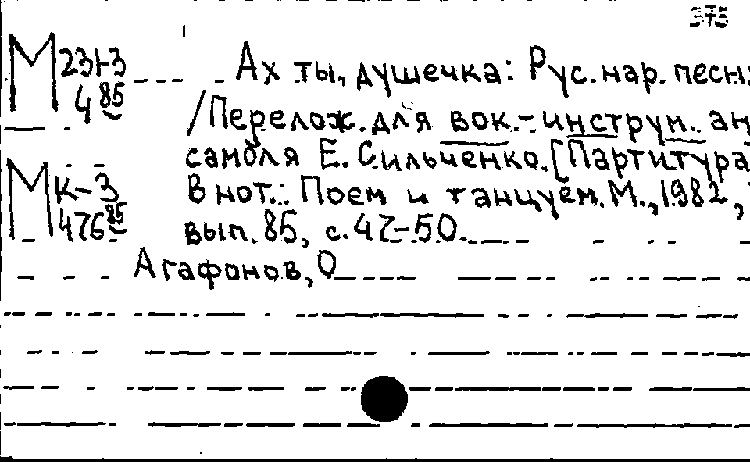 375
М 231-3 Ах ты, душечка: Рус. нар. песн
4 85 /Перелож. для вок.-инструм. ан
самбля Е. Сильченко. [Партитура
М К-3 В нот.: Поем и танцуем. М., 1982,
476 85 вып. 85, с. 47-50.
Агафонов, О